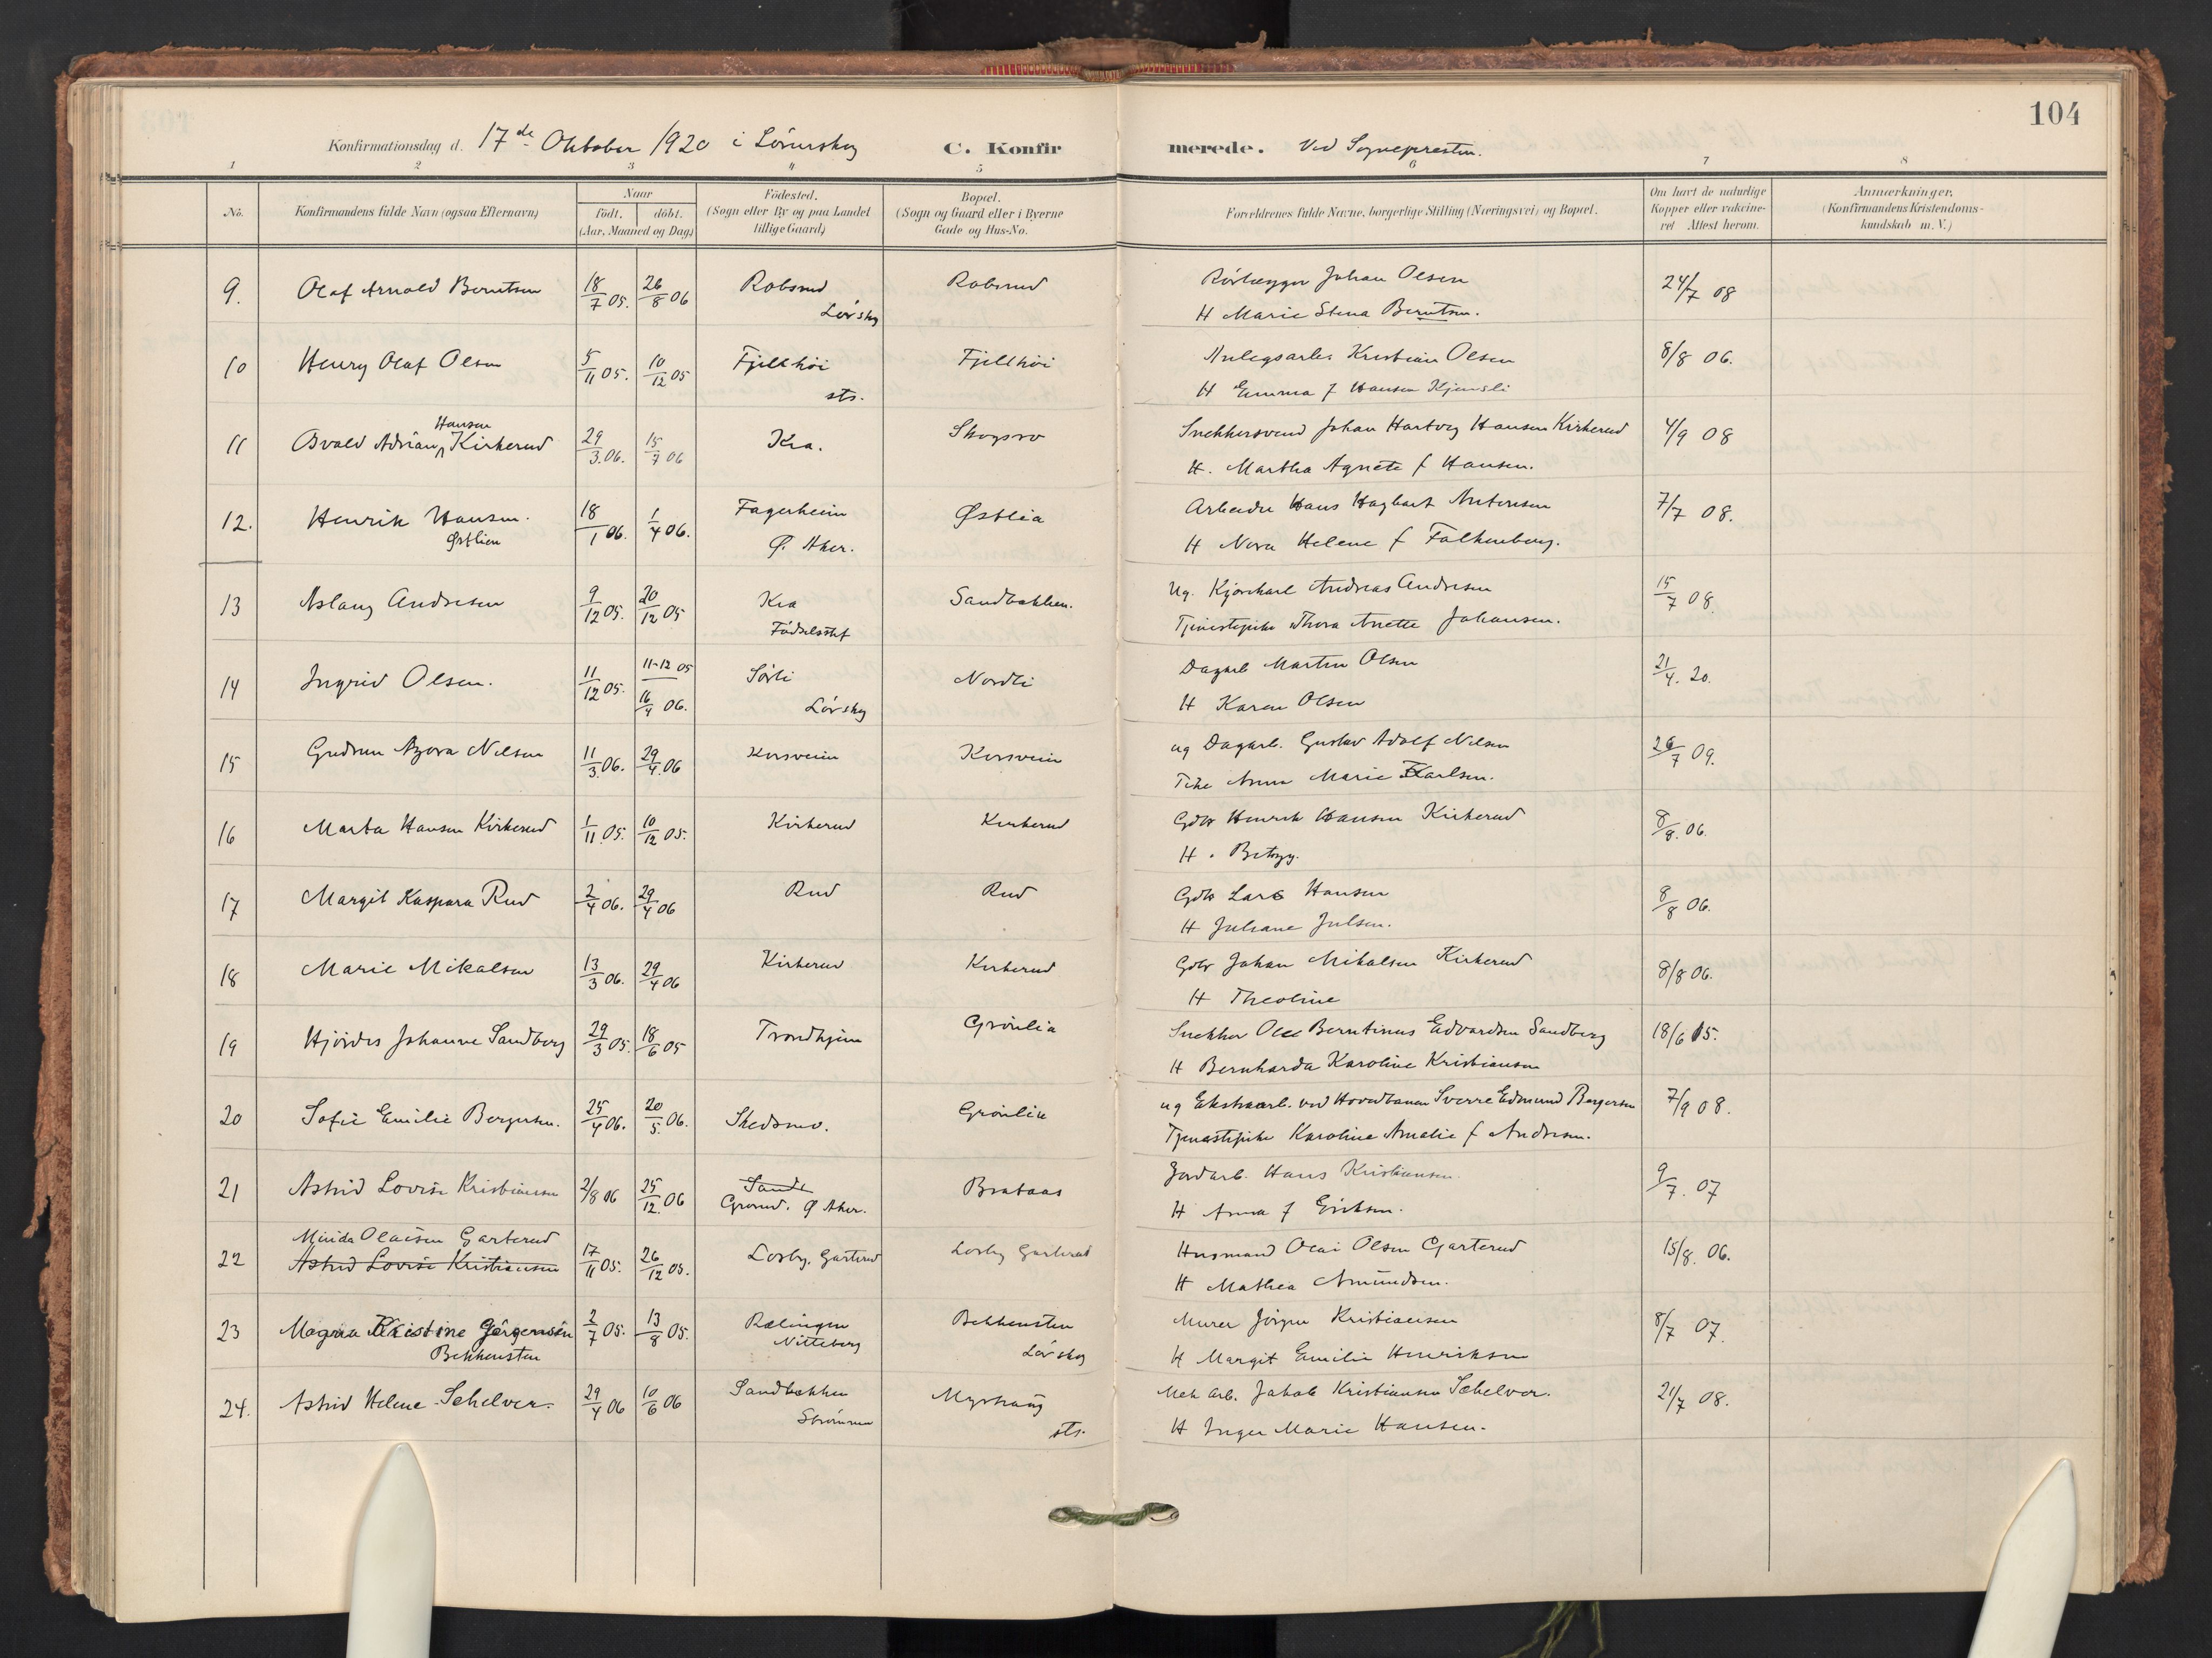 104
Konfirmationsdag d. 17de Oktober 1920 i Lörenskog C. Konfirmerede. Ved Sognepresten.
1 2 3 4 5 6 7 8
No.
Konfirmandens fulde Navn (ogsaa Efternavn)
Naar
födt. döbt.
(Aar, Maaned og Dag)
Födested.
(Sogn eller By og paa Landet
tillige Gaard)
Bopæl.
(Sogn og Gaard eller i Byerne
Gade og Hus-No.
Forældrenes fulde Navne, borgerlige Stilling (Næringsvei) og Bopæl.
Om havt de naturlige
Kopper eller vakcine-
ret Attest herom.
Anmærkninger.
(Konfirmandens Kristendoms-
kundskab m. V.)
9. Olaf Arnold Berntsen 18/7 05. 26/8 06 Robsrud Robsrud Rörlægger Johan Olsen 24/7 08
Lörskog H Marie Stena Berntsen.
10 Henry Olaf Olsen 5/11 05. 10/12 05 Fjellhöi Fjellhöi Anlegsarb. Kristian Olsen 8/8 06.
sts. H Emma f Hansen Kjemsli
Hansen
11 Osvald Adrian Kirkerud 29/3. 06. 15/7 06 Kra. Skogsro Snekkersvend Johan Hartvig Hansen Kirkerud 4/9 08
H. Martha Agnete f Hansen.
12. Henrik Hansen. 18/1 06. 1/4 06. Fagerheim Østlia Arbeider Hans Hagbart Antonsen 7/7 08.
Østlien Ø. Aker. H Nora Helene f Falkenberg.
13 Aslaug Andresen 9/12 05. 20/12 05 Kra Sandbakken. Ug. Kjørekarl Andreas Andresen 15/7 08.
Födselsstif Tjenestepike Thora Anette Johansen.
14 Ingrid Olsen. 11/12 05. 11-12 05 Sörli Nordli Dagarb Martin Olsen 21/4. 20.
16/4 06. Lörskog H Karen Olsen
15 Gudrun Azora Nilsen 11/3. 06. 29/4. 06 Korsveien Korsveien ug Dagarb. Gustav Adolf Nilsen 26/7 09.
Pike Anna Marie Karlsen.
16 Marta Hansen Kirkerud 1/11 05. 10/12 05. Kirkerud Kirkerud Gdbr Henrik Hansen Kirkerud 8/8. 06.
H. Betzy.
17 Margit Kaspara Rud 2/4 06. 29/4 06 Rud Rud Gdbr Lars Hansen 8/8 06.
H Juliane Julsen.
18 Marie Mikalsen 13/3 06. 29/4 06 Kirkerud Kirkerud Gdbr Johan Mikalsen Kirkerud 8/8 06.
H Theoline
19 Hjördis Johanne Sandberg 29/3 05. 18/6 05 Trondhjem Grönlia Snekker Ole Berntinus Edvardsen Sandberg 18/6 15.
H Bernharda Karoline Kristiansen
20 Sofie Emilie Bergersen. 25/4 06. 20/5. 06. Skedsmo. Grönlia ug Ekstraarb. ved Hovedbanen Sverre Edmund Bergersen 7/9 08.
Tjenestepike Karoline Amalie f Andresen.
21 Astrid Lovise Kristiansen 2/8 06 25/12. 06 Sande Brataas Jordarb. Hans Kristiansen. 9/7. 07
Grorud. Ø Aker. H Anna f Eriksen.
Minda Olaisen Garterud
22 Astrid Lovise Kristiansen 17/11 05. 26/12 05. Losby, Garterud Losby Garterud Husmand Olai Olsen Garterud 15/8. 06.
H Mathea Amundsen.
23 Magna Kristine Jörgensen 2/7 05. 13/8 05. Rælingen Bekkensten Murer Jörgen Kristiansen 8/7 07.
Bekkensten Nitteberg Lörskog H Margit Emilie Henriksen
24. Astrid Helene Schelver. 29/4 06 10/6 06 Sandbekken Myrhaug Mek arb. Jakob Kristiansen Schelver. 21/7 08.
Strömmen sts. H Inger Marie Hansen.